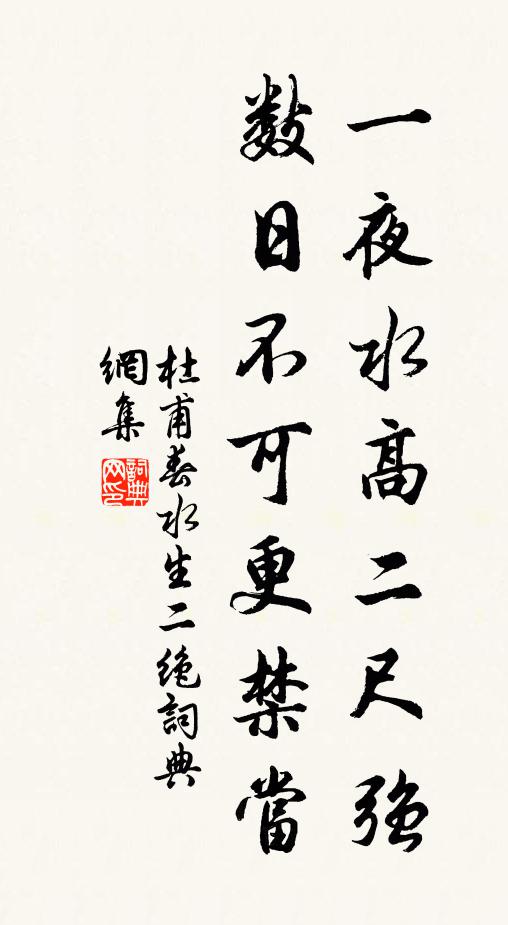 一夜水高二尺強
數日不可更禁當
杜甫春水生二絶詞典
網集
詞典网印